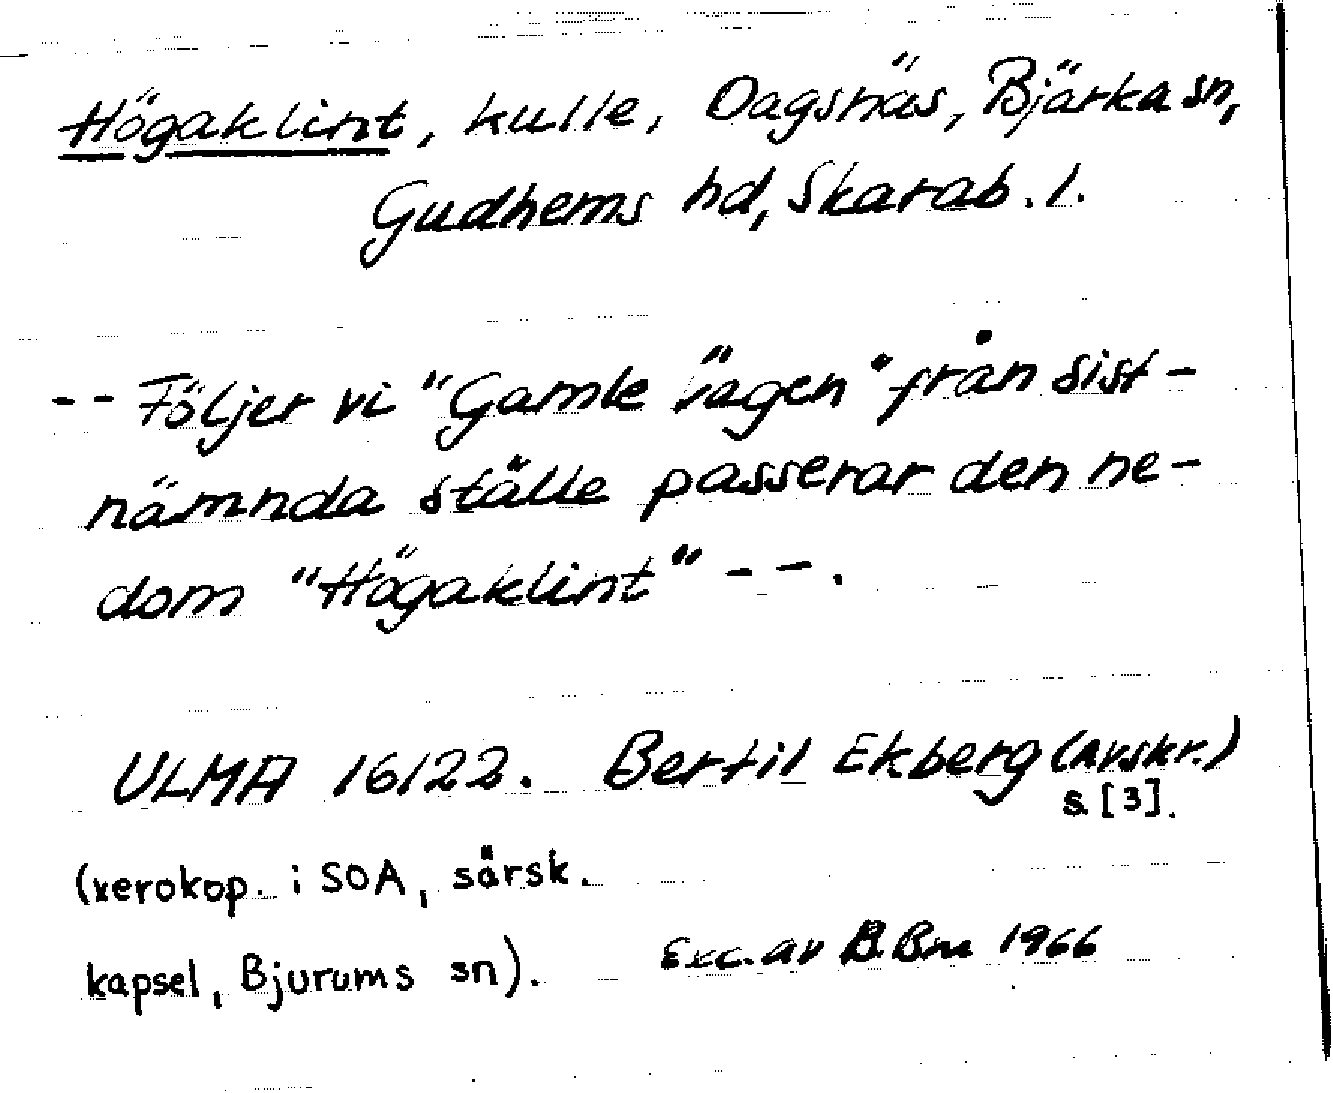 Högaklint, kulle, Dagsnäs, Bjärka sn,
Gudhems hd, Skarab. l.
-- Följer vi "Gamle vägen" från sist-
nämnda ställe passerar den ne-
dom "Högaklint" --.
ULMA 16122. Bertil Ekberg (avskr.)
s. [3].
(xerokop. i SOA, särsk.
kapsel, Bjurums sn).
Exc. av B.Bm 1966